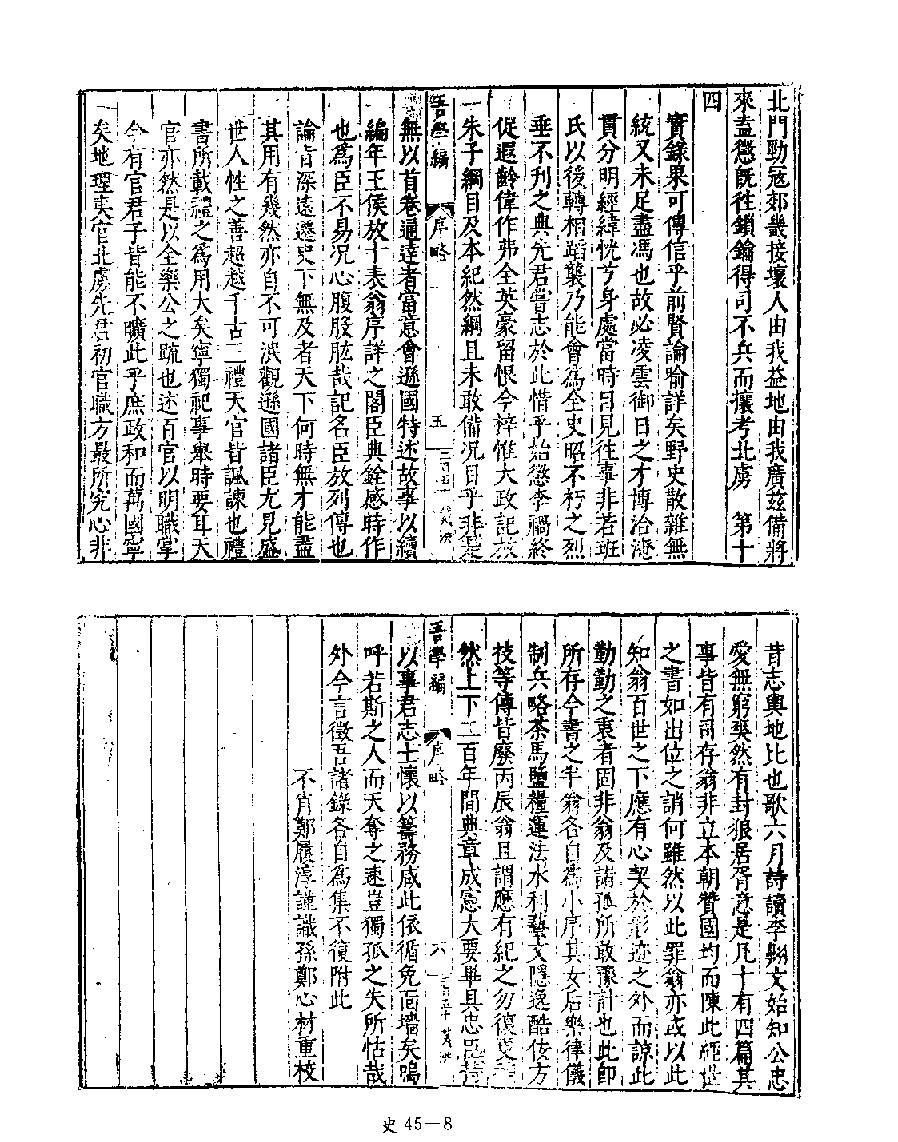 北門勁冦郊畿接壤人由我益地由我廣兹備將
來盍懲旣徃鎖鑰得司不兵而攘考北虜　第十
四
實録果可傳信乎前賢論喻詳矣野史散雜無
統又未足盡馮也故必凌雲御日之才博洽
貫分明經緯恍亐身處當時目見徃事非若班
氏以後轉相蹈襲乃能㑹為全史略不朽之烈
垂不刋之典先君嘗志於此惜乎始懲李禍終
促遐齡偉作弗全英豪留恨今梓惟大政記
一朱子綱目及本紀然綱且未敢備况目乎非
吾學編　序略　五
無以首卷通達者當意㑹遜國特述故事以續
編年王侯故十表翁序詳之閣臣典銓感時作
也為臣不易况心腹股肱哉記名臣放列傳也
論旨深遠遷史下無及者天下何時無才能盡
其用有幾然亦自不可泯觀遜國諸臣尤見盛
世人性之善越越千古二禮天官皆諷諫也禮
書所載禮之為用大矣寧獨祀事舉時要耳天
官亦然是以全藥公之疏也述百官以明職掌
今有官君子皆能不曠此乎庶政和而萬國寧
矣地理夷官北虜先君初官職方最所究心非
昔志輿地比也歌六月詩讀李縣文始知公忠
愛無窮奭然有封狼居胥意是凡十有四篇其
事皆有司存翁非立本朝贊國均而陳此經世
之書如出位之誚何雖然以此罪翁亦或以此
知翁百世之下應有心契於形迹之外而諒此
勤勤之衷者固非翁及諸孤所敢豫計也此即
所存今書之半翁各自為小序其女后樂律儀
制兵略茶馬鹽糧運法水利藝文隱逸酷佞方
技等傳皆廢丙辰翁且謂應有紀之勿復
然上下二百年間典章成憲大要畢具忠臣持
吾學編　序略　六
以事君志士懷以籌務咸此依循免面墻矣嗚
呼若斯之人而天奪之速豈獨孤之失所怙哉
外今言徵吾諸錄各自為集不復附此
不肖鄭履淳謹識孫鄭心材重校
史 45—8